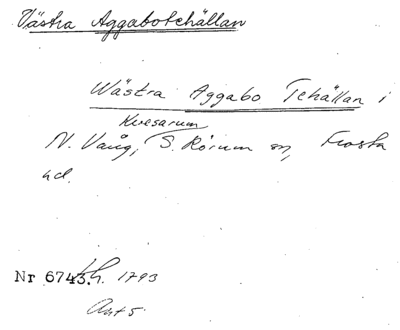 Västra Aggabotehällan
Wästra Aggabo Tehällan i
Kvesarum
N. Vång, S. Rörum sn, Frosta
hd.
Nr 6743. Lh. 1793
Akt 5.